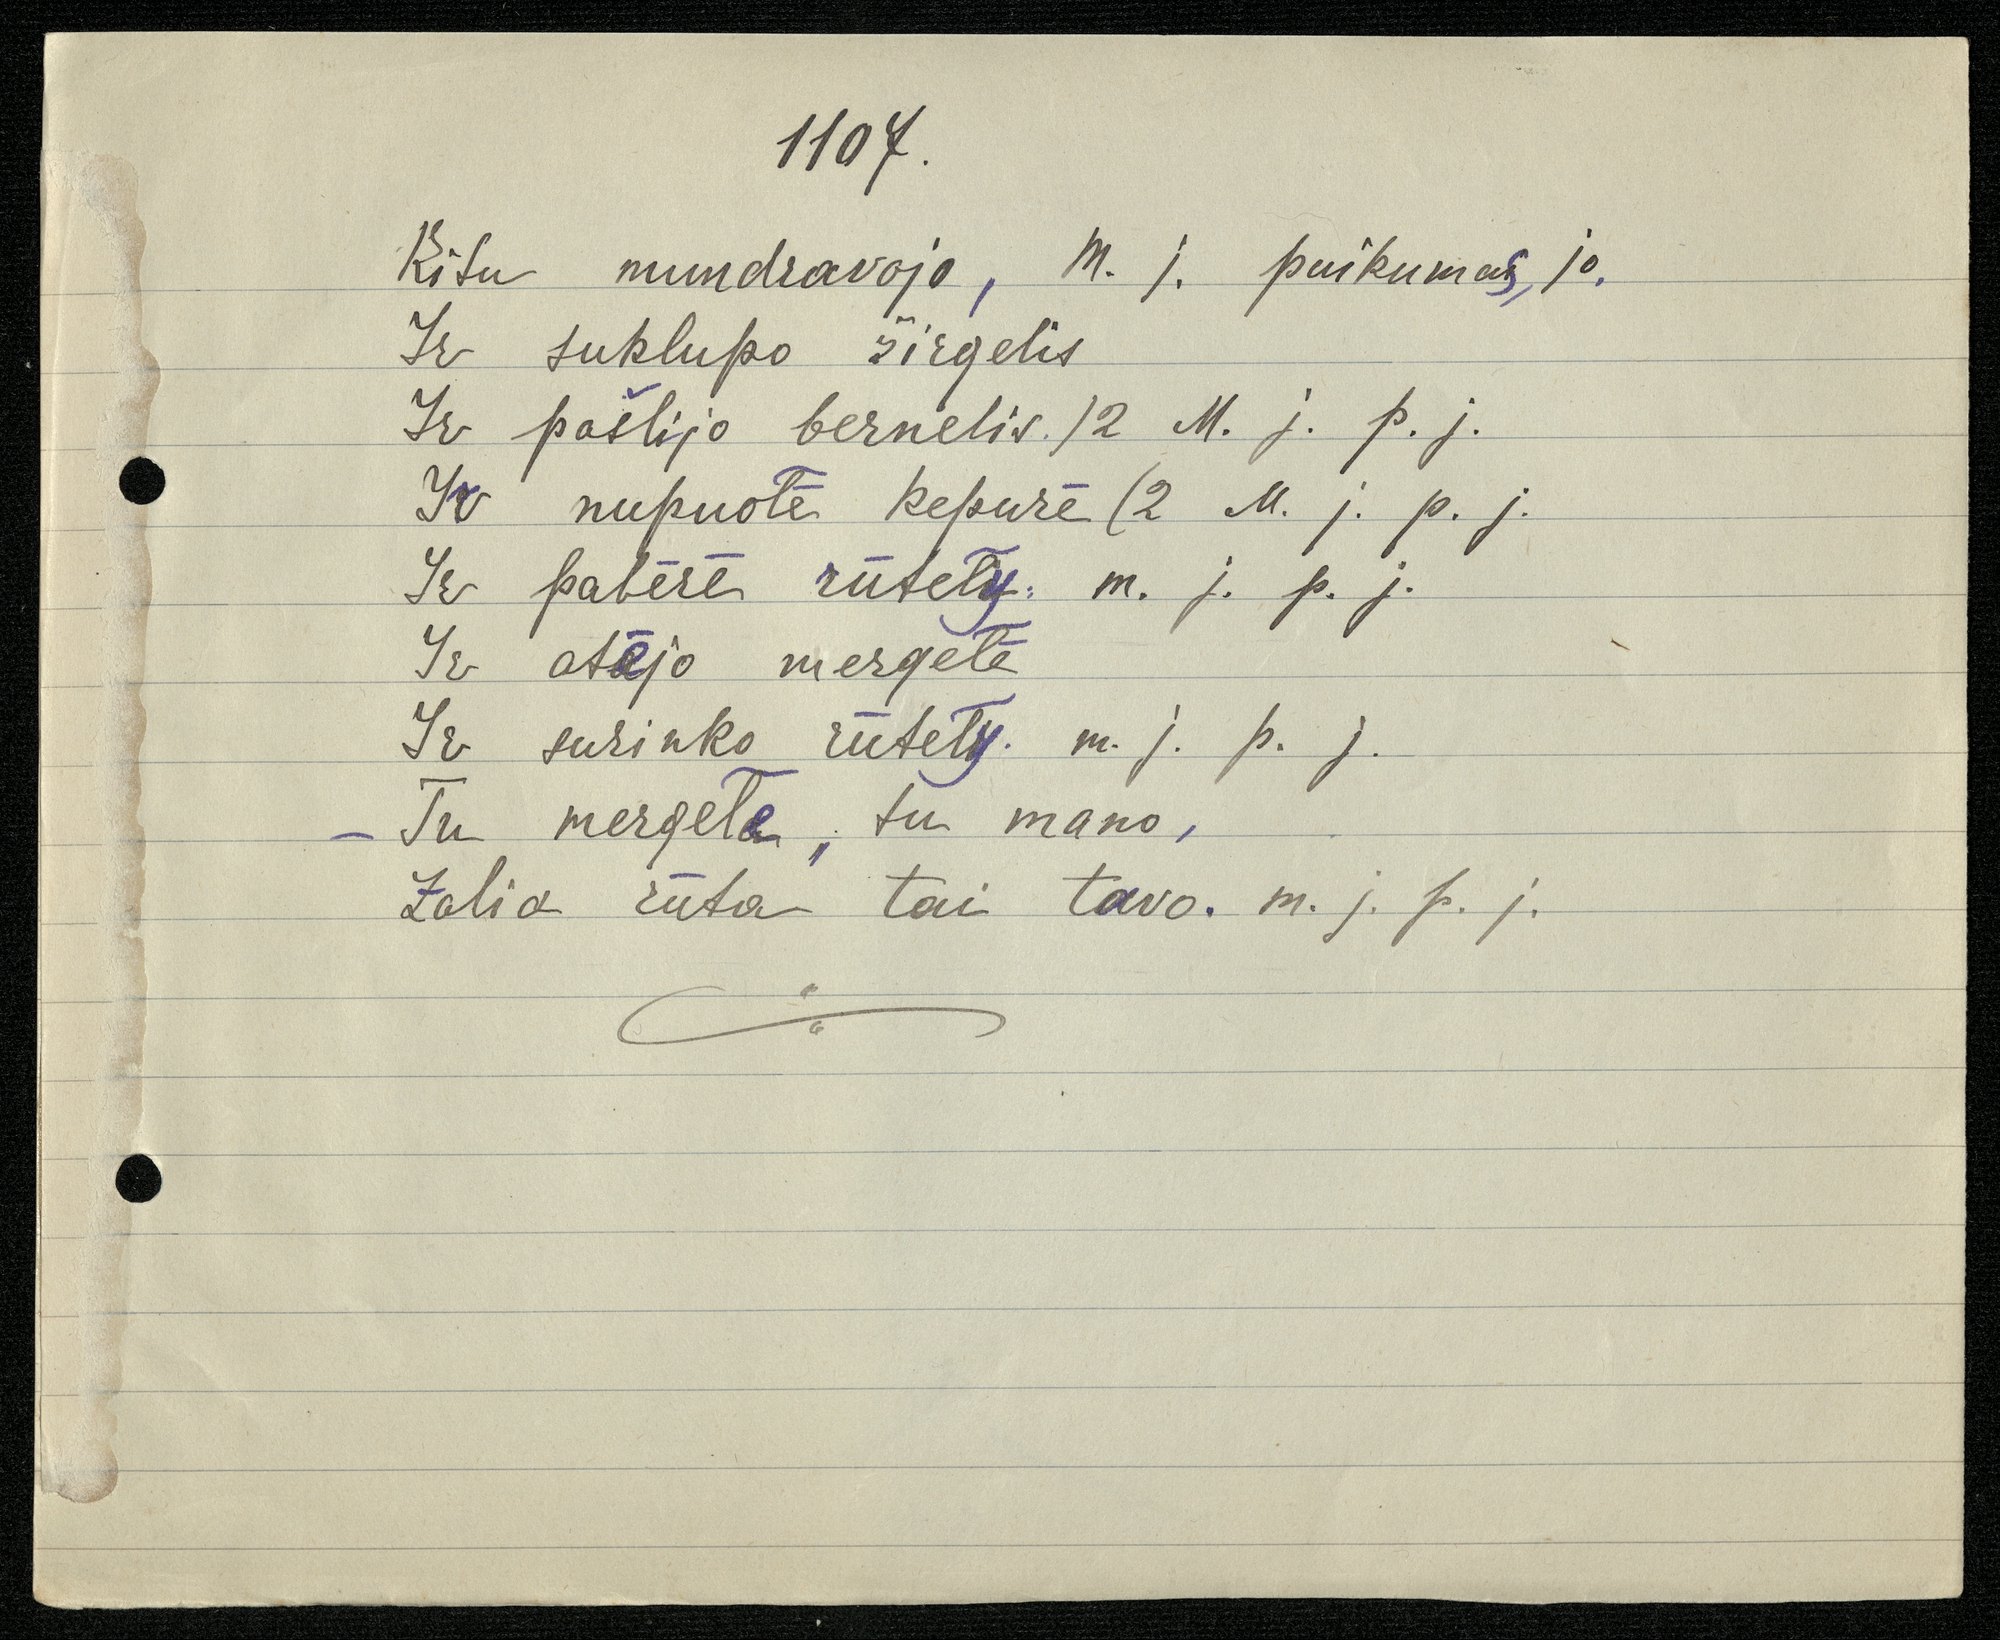 1107.
Kitu mundravojo, M. j. puikumas, jo.
Ir suklupo žirgelis
Ir pašlijo bernelis. )2 M. j. p. j.
Ir nupuotē kepurē (2 M. j. p. j.
Ir pabērē rūtely: m. j. p. j.
Ir atējo mergetē
Ir surinko rūtely. m. j. p. j.
– Tu mergete, tu mano,
Žalia rūta tai tavo. m. j. p. j.